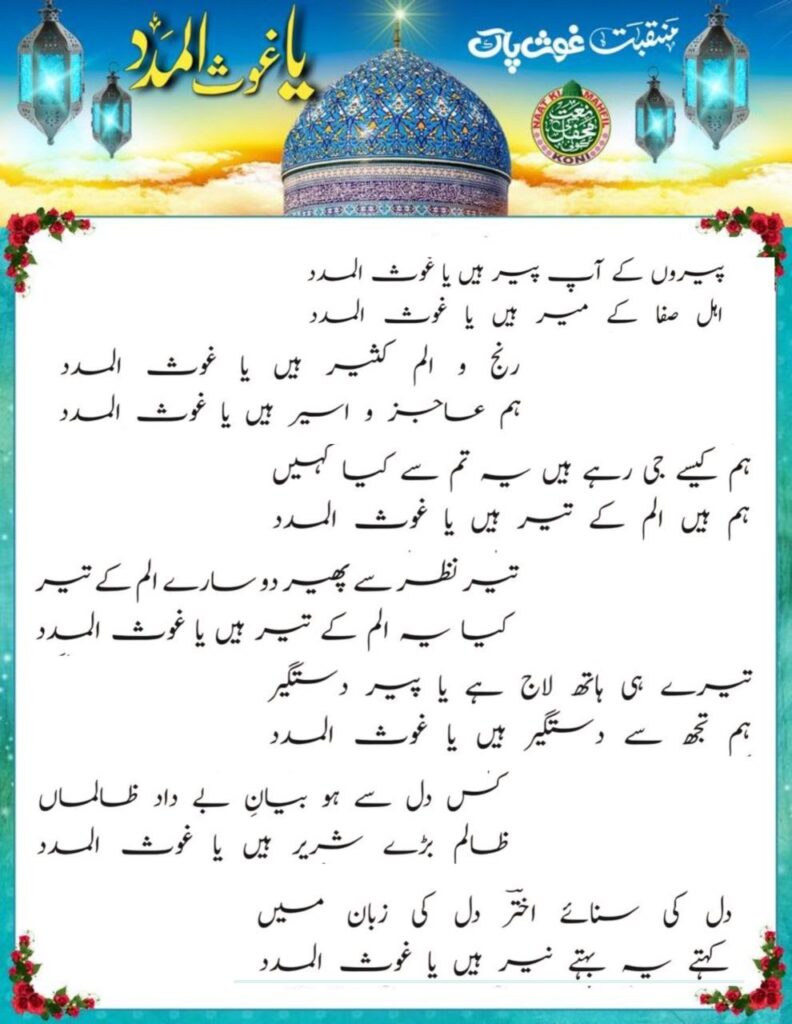 منقبت غوث پاک
یا غوث المدد
NAAT KI MAHFIL
محفل نعت
کونی
KONI
پیروں کے آپ پیر ہیں یا غوث المدد
اہل صفا کے میر ہیں یا غوث المدد
رنج و الم کثیر ہیں یا غوث المدد
ہم عاجز و اسیر ہیں یا غوث المدد
ہم کیسے جی رہے ہیں یہ تم سے کیا کہیں
ہم ہیں الم کے تیر ہیں یا غوث المدد
تیر نظر سے پھیر دو سارے الم کے تیر
کیا یہ الم کے تیر ہیں یا غوث المدد
تیرے ہی ہاتھ لاج ہے یا پیر دستگیر
ہم تجھ سے دستگیر ہیں یا غوث المدد
کس دل سے ہو بیانِ بے داد ظالماں
ظالم بڑے شریر ہیں یا غوث المدد
دل کی سنائے اختر دل کی زبان میں
کہتے یہ بہتے نیر ہیں یا غوث المدد